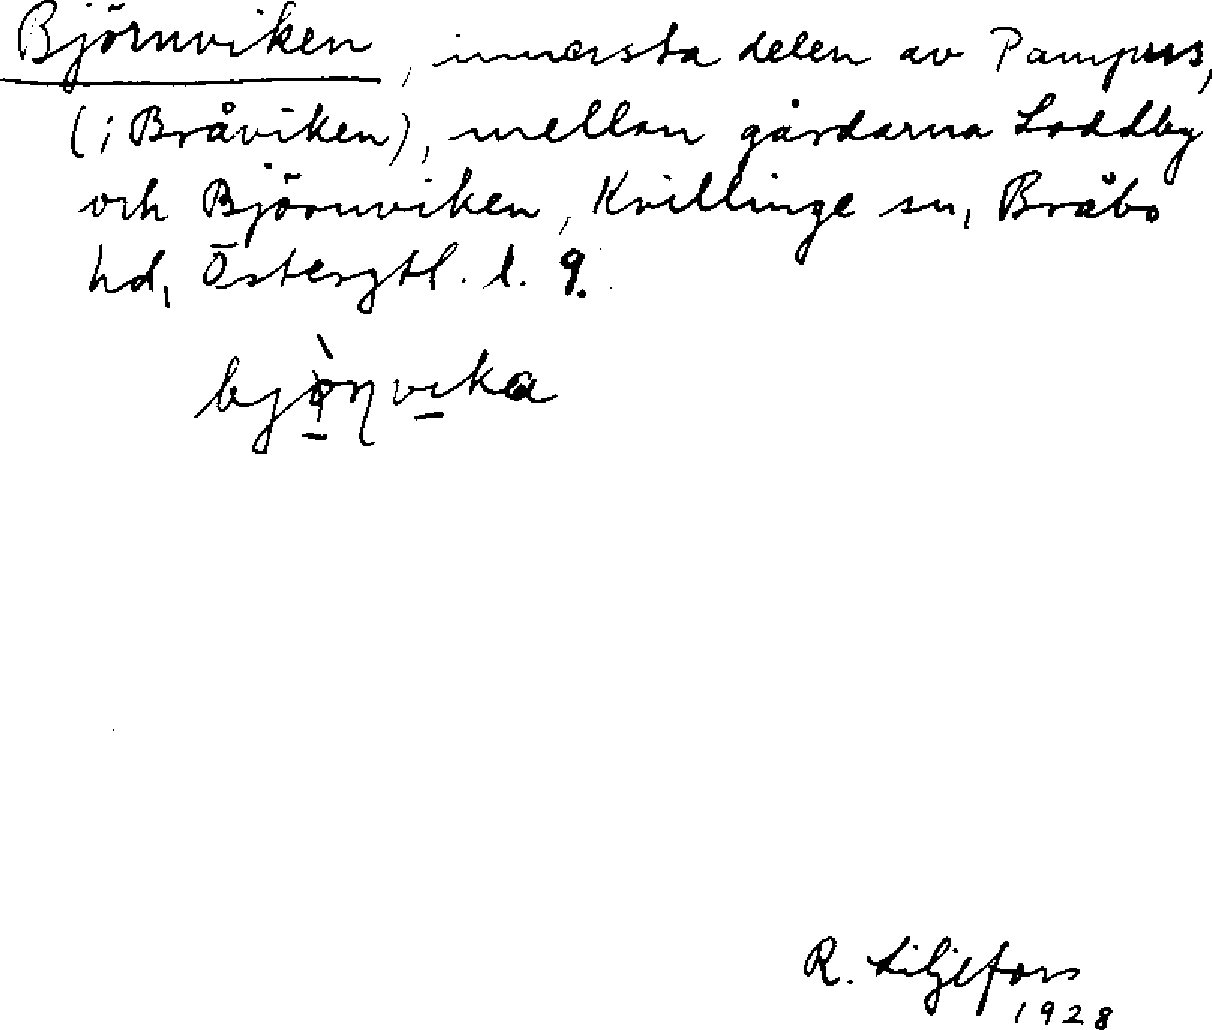 Björnviken, innersta delen av Pampus,
(i Bråviken), mellan gårdarna Loddby
och Björnviken, Kvillinge sn, Bråbo
hd, Östergtl. l. 9.
R. Liljefors
1928